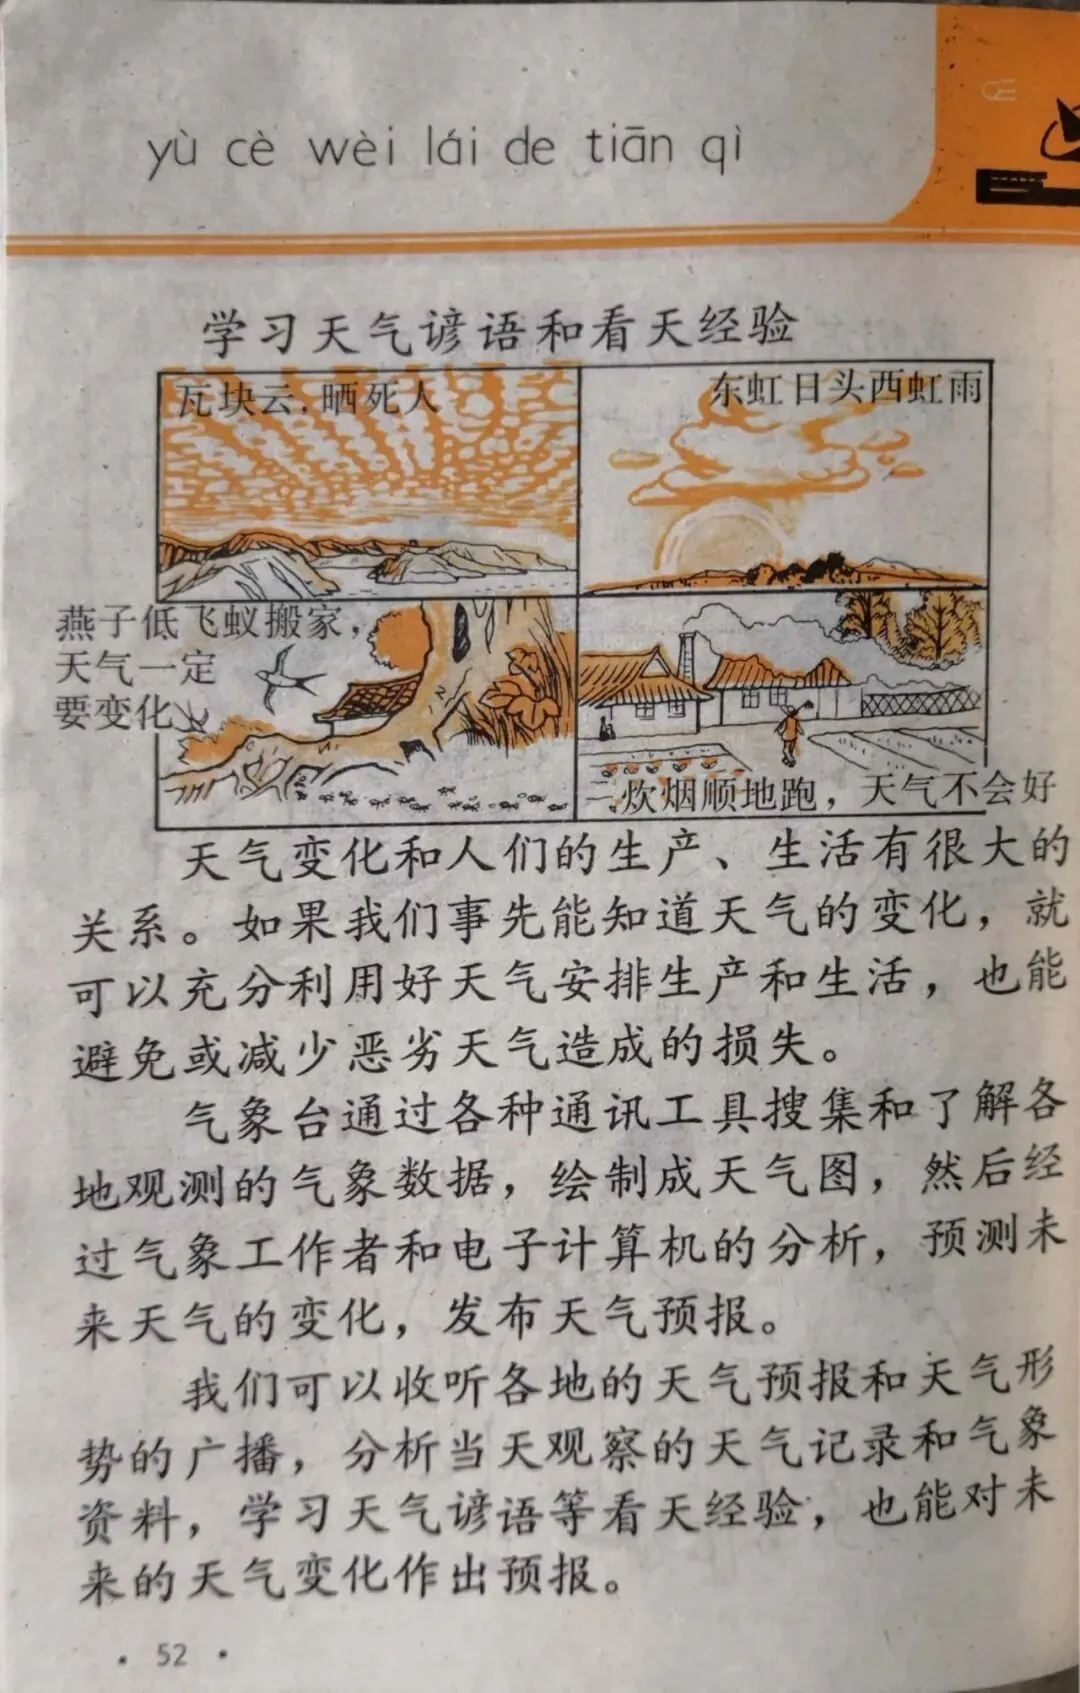 yù cè wèi lái de tiān qì
学习天气谚语和看天经验
瓦块云，晒死人
东虹日头西虹雨
燕子低飞蚁搬家，
天气一定
要变化
炊烟顺地跑，天气不会好
天气变化和人们的生产、生活有很大的
关系。如果我们事先能知道天气的变化，就
可以充分利用好天气安排生产和生活，也能
避免或减少恶劣天气造成的损失。
气象台通过各种通讯工具搜集和了解各
地观测的气象数据，绘制成天气图，然后经
过气象工作者和电子计算机的分析，预测未
来天气的变化，发布天气预报。
我们可以收听各地的天气预报和天气形
势的广播，分析当天观察的天气记录和气象
资料，学习天气谚语等看天经验，也能对未
来的天气变化作出预报。
· 52 ·